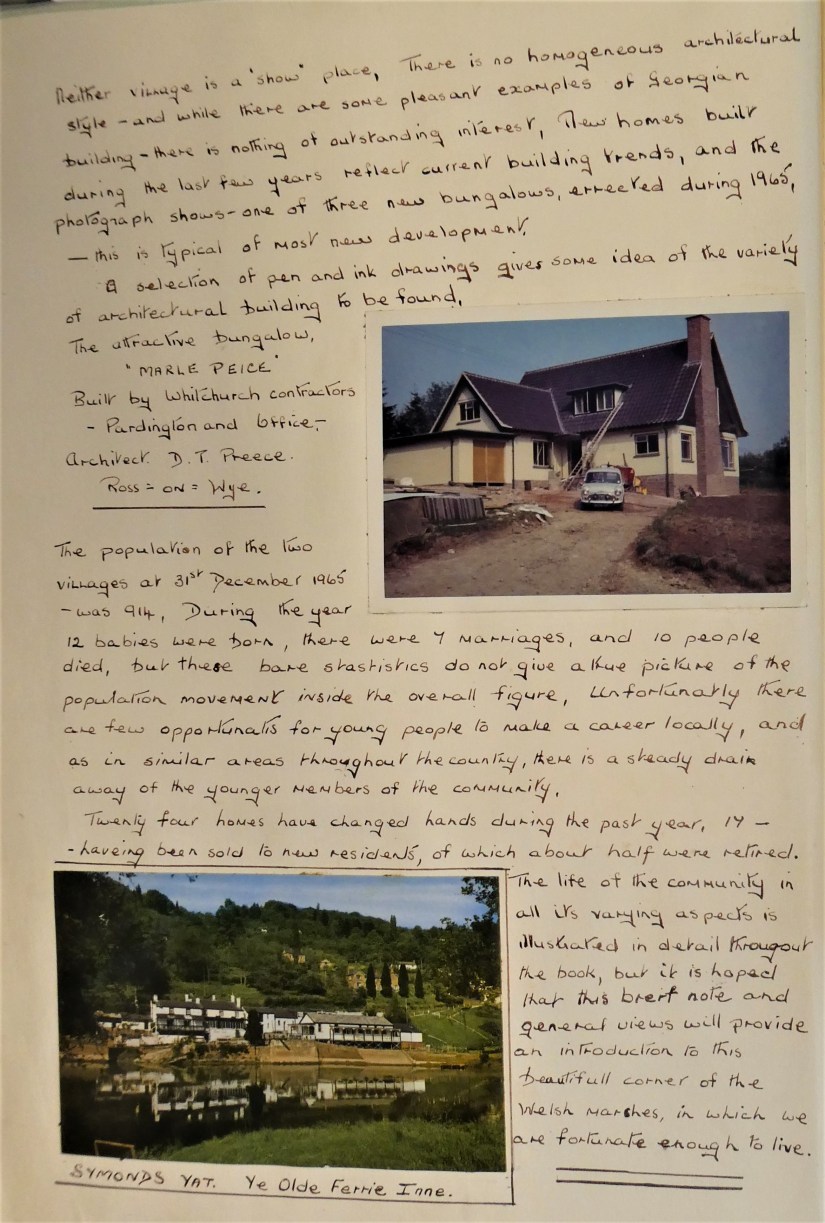 Neither village is a "show" place, There is no homogeneous architectural
style - and while there are some pleasant examples of Georgian
building - there is nothing of outstanding interest, New homes built
during the last few years reflect current building trends, and the
photograph shows - one of three new bungalows, errected during 1965,
- this is typical of most new development.
A selection of pen and ink drawings gives some idea of the variety
of architectural building to be found,
The attractive bungalow,
"MARLE PEICE"
Built by Whitchurch contractors
- Pardington and Office, -
Architect. D. T. Preece.
Ross = on = Wye.
The population of the two
villages at 31st December 1965
- was 914, During the year
12 babies were born, there were 7 marriages, and 10 people
died, but these bare stastistics do not give a true picture of the
population movement inside the overall figure, Unfortunatly there
are few opportunatis for young people to make a career locally, and
as in similar areas throughout the country, there is a steady drain
away of the younger members of the community.
Twenty four homes have changed hands during the past year, 17 -
- haveing been sold to new residents, of which about half were retired.
The life of the community in
all its varying aspects is
illustrated in detail througout
the book, but it is hoped
that this breif note and
general views will provide
an introduction to this
beautifull corner of the
Welsh Marches, in which we
are fortunate enough to live.
SYMONDS YAT. Ye Olde Ferrie Inne.